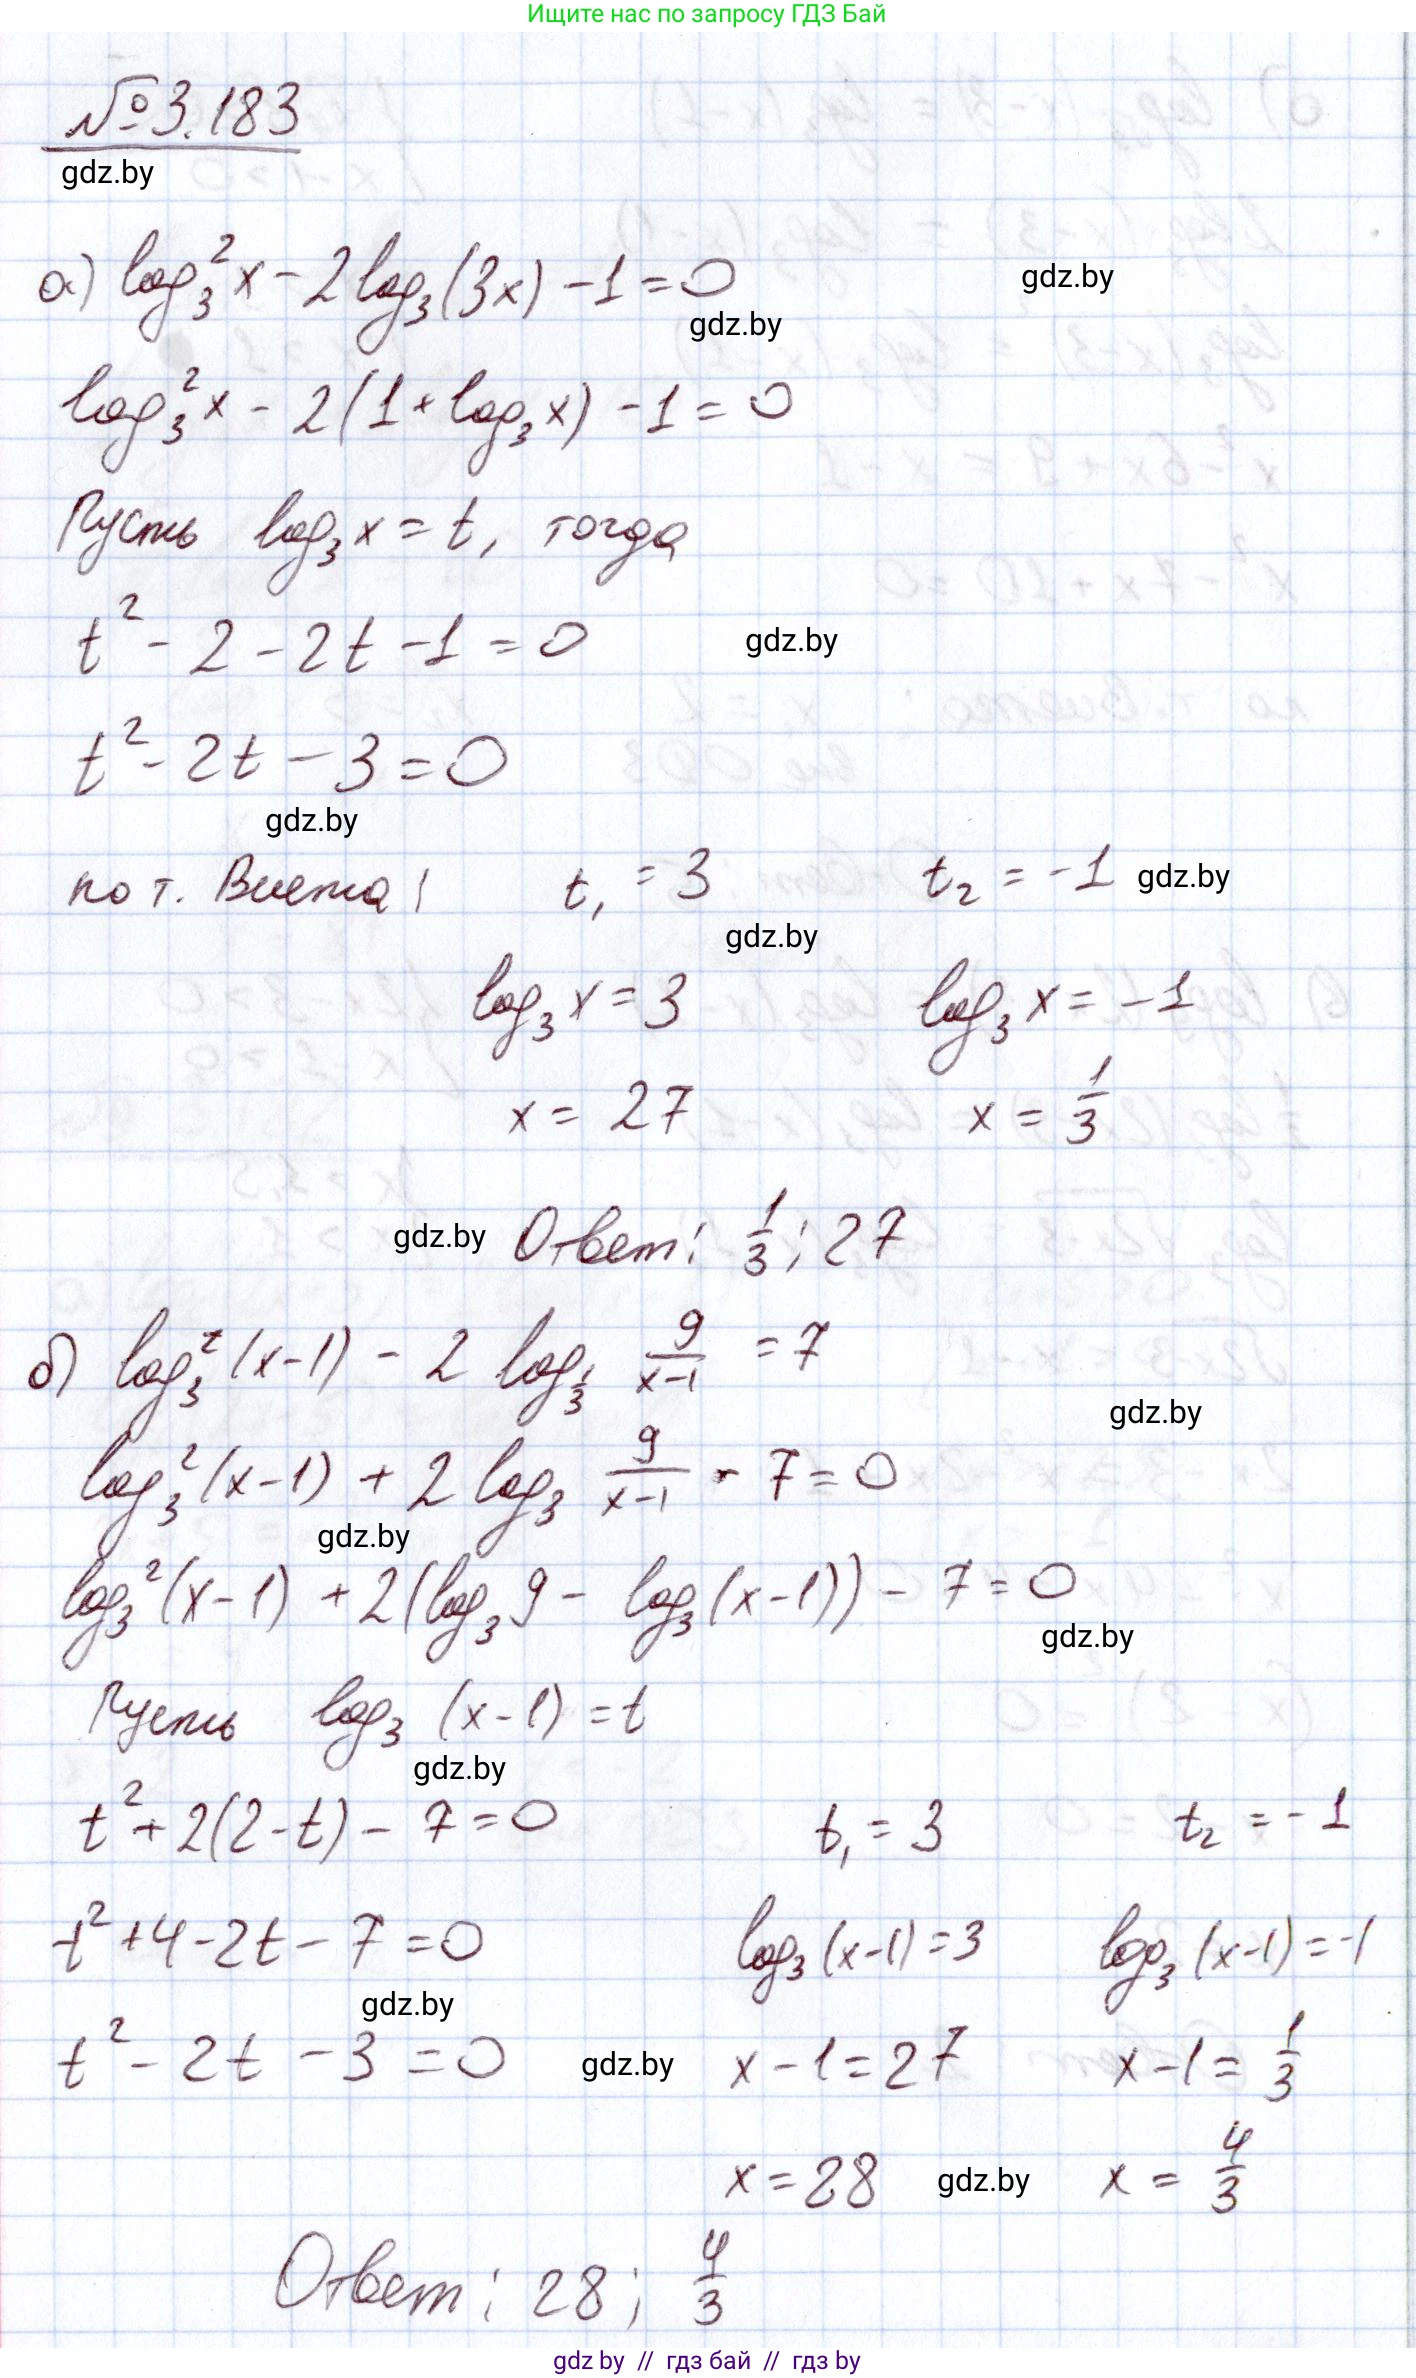 Ищите нас по запросу ГДЗ Бай
№3.183
gdz.by
а) log₃²x - 2log₃(3x) - 1 = 0
gdz.by
gdz.by
log₃²x - 2(1 + log₃x) - 1 = 0
Пусть log₃x = t, тогда
t² - 2 - 2t - 1 = 0
gdz.by
t² - 2t - 3 = 0
gdz.by
по т. Виета: t₁ = 3 t₂ = -1 gdz.by
gdz.by
log₃x = 3 log₃x = -1
x = 27 x = 1/3
gdz.by Ответ: 1/3; 27
б) log₃²(x-1) - 2 log_{1/3} 9/(x-1) = 7
gdz.by
log₃²(x-1) + 2 log₃ 9/(x-1) - 7 = 0
gdz.by
log₃²(x-1) + 2(log₃9 - log₃(x-1)) - 7 = 0
gdz.by
Пусть log₃(x-1) = t
gdz.by
t² + 2(2-t) - 7 = 0 t₁ = 3 t₂ = -1
t² + 4 - 2t - 7 = 0 log₃(x-1) = 3 log₃(x-1) = -1
gdz.by
t² - 2t - 3 = 0 gdz.by x - 1 = 27 x - 1 = 1/3
x = 28 gdz.by x = 4/3
Ответ: 28; 4/3
gdz.by // гдз бай // гдз by